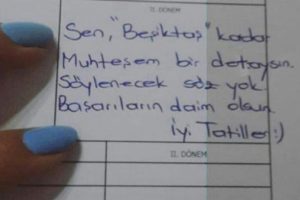 II. DÖNEM
Sen, "Beşiktaş" kadar
Muhteşem bir detaysın.
Söylenecek söz yok.
Başarıların daim olsun.
İyi Tatiller :)
II. DÖNEM